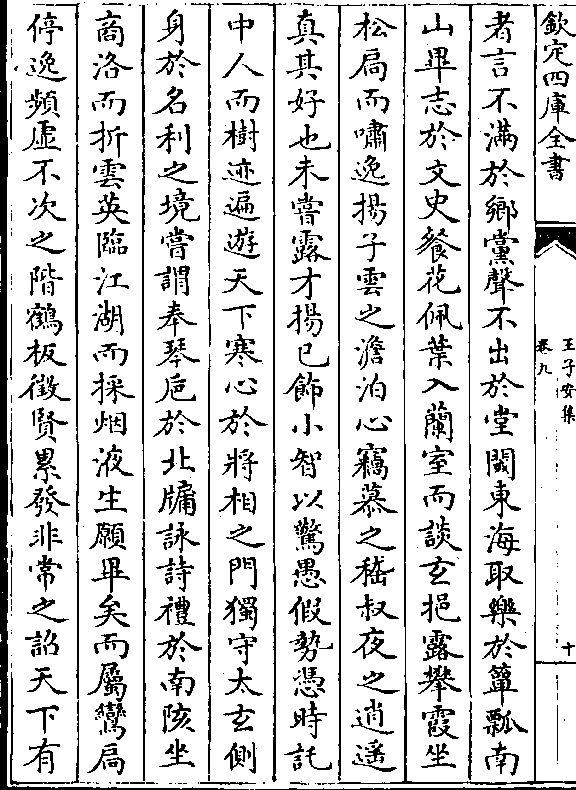 欽定四庫全書
王子安集
卷九
十
者言不滿於鄉黨聲不出於堂閾東海取樂於簞瓢南
山畢志於文史餐花佩葉入蘭室而談玄挹露攀霞坐
松扃而嘯逸揚子雲之澹泊心竊慕之嵇叔夜之逍遥
真其好也未嘗露才揚已飾小智以驚愚假勢憑時託
中人而樹迹遍遊天下寒心於將相之門獨守太玄側
身於名利之境嘗謂奉琴巵於北牖詠詩禮於南陔坐
商洛而折雲英臨江湖而採烟液生願畢矣而屬鸞扃
停逸頻虛不次之階鶴板徵賢累發非常之詔天下有